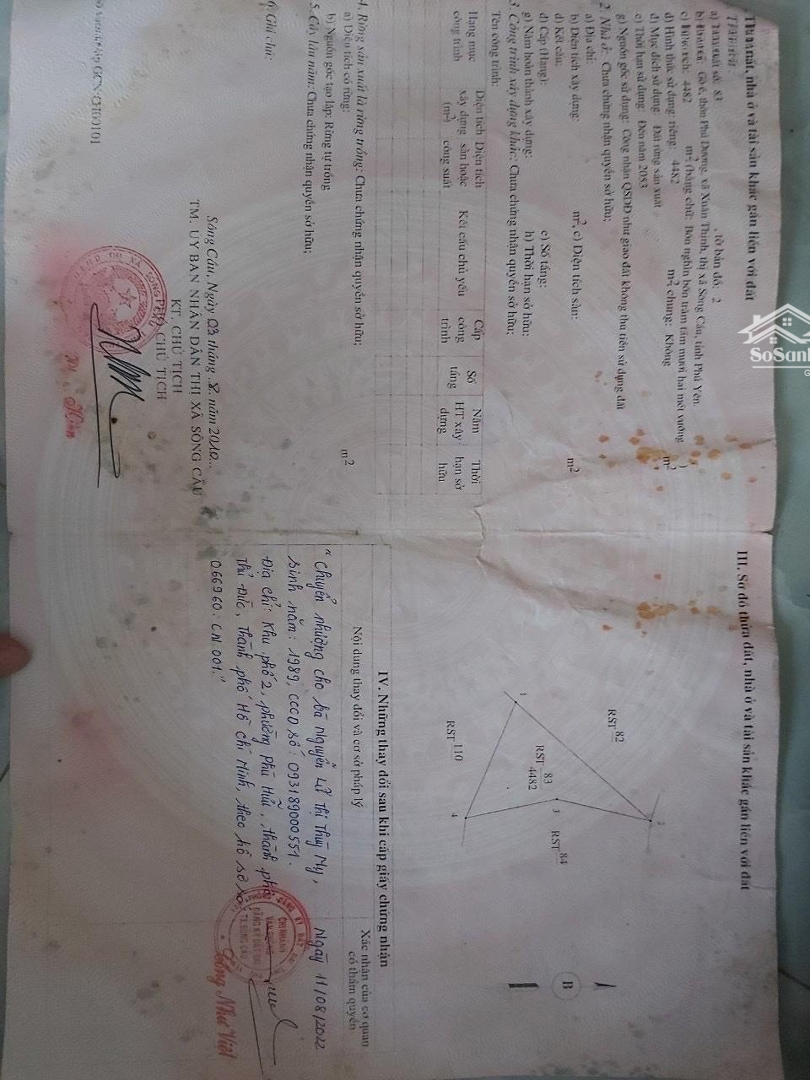 1. Thửa đất, nhà ở và tài sản khác gắn liền với đất
1. Thửa đất:
a) Thửa đất số: 83 , tờ bản đồ: 2
b) Địa chỉ: Gò 6, thôn Phú Dương, xã Xuân Thịnh, thị xã Sông Cầu, tỉnh Phú Yên.
c) Diện tích: 4482 m², (bằng chữ: Bốn nghìn bốn trăm tám mươi hai mét vuông )
d) Hình thức sử dụng: riêng: 4482 m²; chung: Không m²
đ) Mục đích sử dụng: Đất rừng sản xuất
e) Thời hạn sử dụng: Đến năm 2053
g) Nguồn gốc sử dụng: Công nhận QSDĐ như giao đất không thu tiền sử dụng đất
2. Nhà ở: Chưa chứng nhận quyền sở hữu;
a) Địa chỉ:
b) Diện tích xây dựng: m², c) Diện tích sàn: m²
d) Kết cấu: e) Số tầng:
đ) Cấp (Hạng):
g) Năm hoàn thành xây dựng: h) Thời hạn sở hữu:
3. Công trình xây dựng khác: Chưa chứng nhận quyền sở hữu;
Tên công trình:
Hạng mục công trình
Diện tích xây dựng (m²)
Diện tích sàn hoặc công suất
Kết cấu chủ yếu
Cấp công trình
Số tầng
Năm HT xây dựng
Thời hạn sở hữu
4. Rừng sản xuất là rừng trồng: Chưa chứng nhận quyền sở hữu;
a) Diện tích có rừng: m²
b) Nguồn gốc tạo lập: Rừng tự trồng
5. Cây lâu năm: Chưa chứng nhận quyền sở hữu;
6. Ghi chú:
Sông Cầu, Ngày 03 tháng 8 năm 2010
TM. ỦY BAN NHÂN DÂN THỊ XÃ SÔNG CẦU
KT. CHỦ TỊCH
PHÓ CHỦ TỊCH
III. Sơ đồ thửa đất, nhà ở và tài sản khác gắn liền với đất
RST 82
2
1
RST 83
4482
3
RST 84
RST 110
4
B
IV. Những thay đổi sau khi cấp giấy chứng nhận
Nội dung thay đổi và cơ sở pháp lý
Xác nhận của cơ quan có thẩm quyền
"Chuyển nhượng cho bà Nguyễn Lữ Thị Thúy My,
sinh năm: 1989, CCCD số: 093189000551.
Địa chỉ: Khu phố 2, phường Phú Hữu, thành phố
Thủ Đức, Thành phố Hồ Chí Minh, theo hồ sơ số
066960.CN.001."
Ngày 11/08/2022
CHI NHÁNH
VĂN PHÒNG
ĐĂNG KÝ ĐẤT ĐAI
TX. SÔNG CẦU
Tống Như Việt
SoSanh